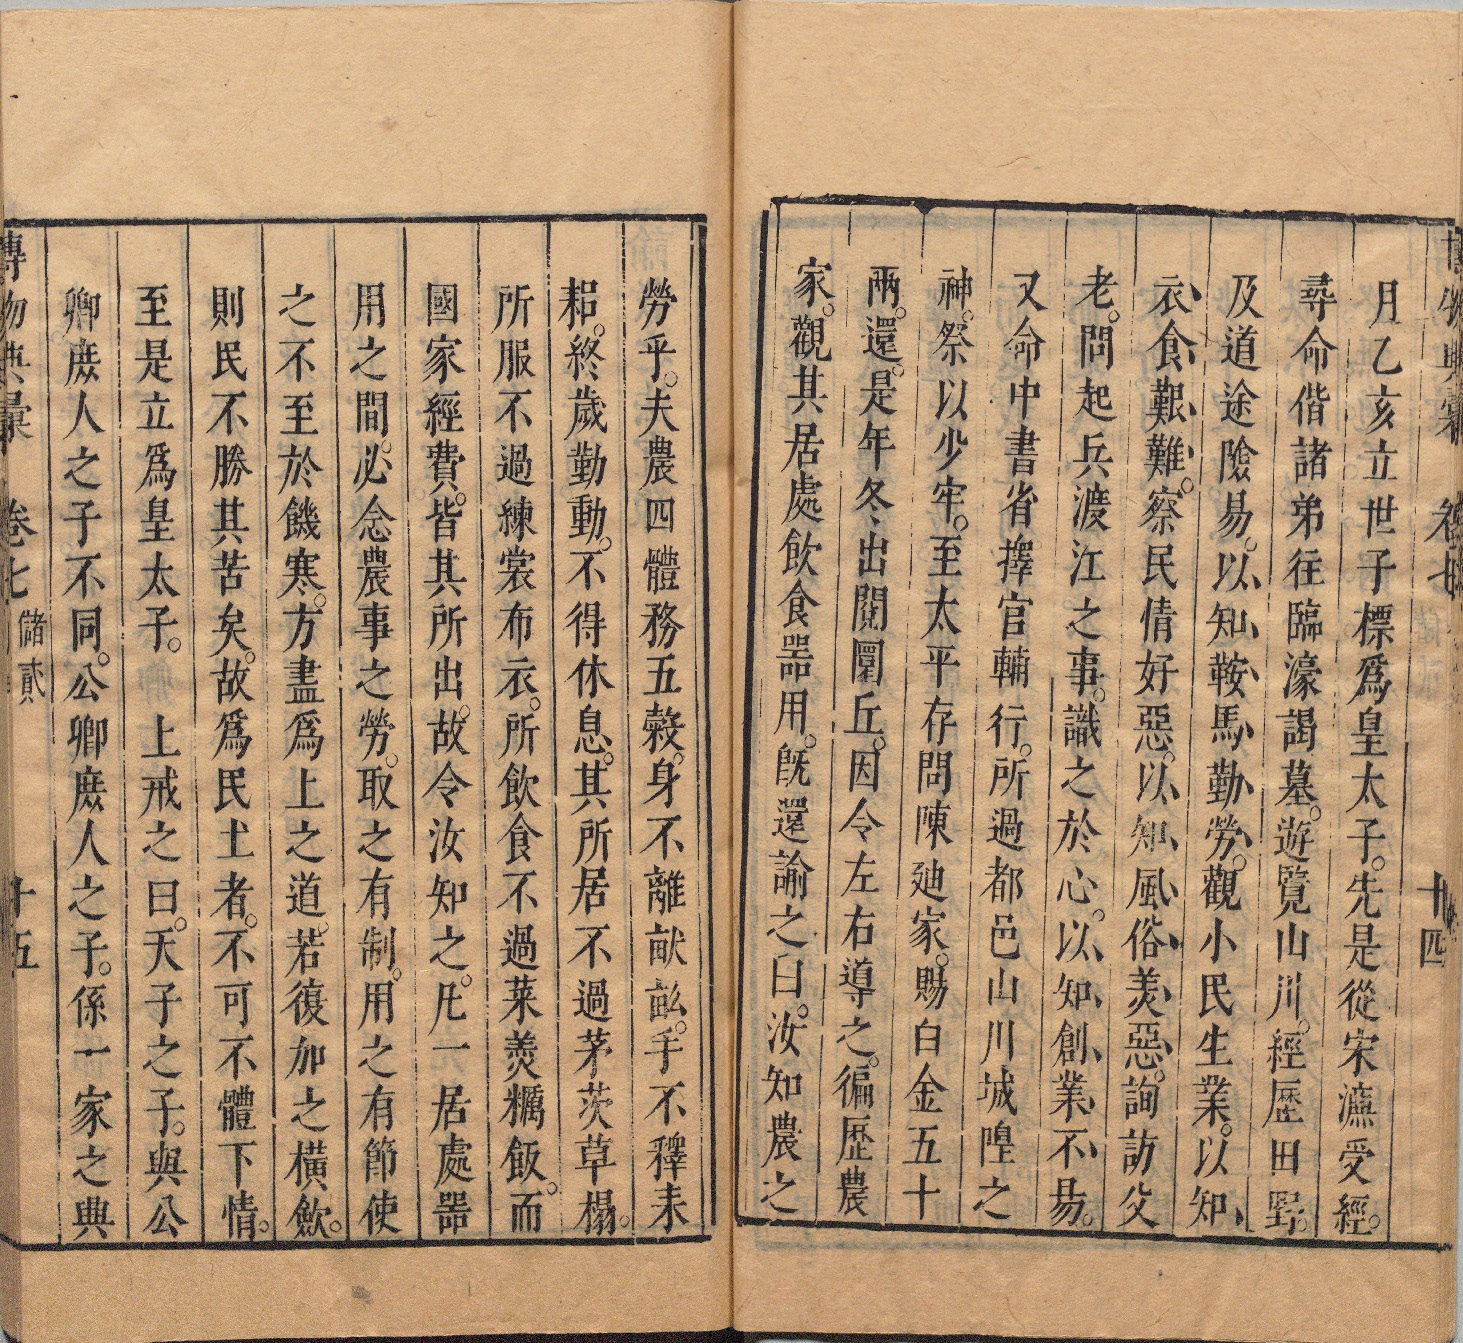 博物典彙　卷七　十四
月乙亥立世子標爲皇太子。先是從宋濂受經。
尋命偕諸弟往臨濠謁墓。遊覽山川。經歷田野。
及道途險易。以、知、鞍、馬、勤、勞。觀小民生業。以知、
衣、食、艱、難。察民情好惡。以、知、風、俗、美、惡。詢訪父
老。問起兵渡江之事。識之於心。以、知、創、業、不、易。
又命中書省擇官輔行。所過都邑山川城隍之
神。祭以少牢。至太平存問陳廸家。賜白金五十
兩。還。是年冬、出閱圜丘。因令左右導之。徧歷農
家。觀其居處飲食器用。旣還諭之曰。汝知農之
勞乎。夫農四體務五穀。身不離畎畝。手不釋耒
耜。終歲勤動。不得休息。其所居不過茅茨草榻。
所服不過練裳布衣。所飲食不過菜羹糲飯。而
國家經費。皆其所出。故令汝知之。凡一居處器
用之間。必念農事之勞。取之有制。用之有節使
之不至於饑寒。方盡爲上之道。若復加之橫斂。
則民不勝其苦矣。故爲民上者。不可不體下情。
至是立爲皇太子。　上戒之曰。天子之子。與公
卿庶人之子不同。公卿庶人之子。係一家之典
博物典彙　卷七　儲貳　十五